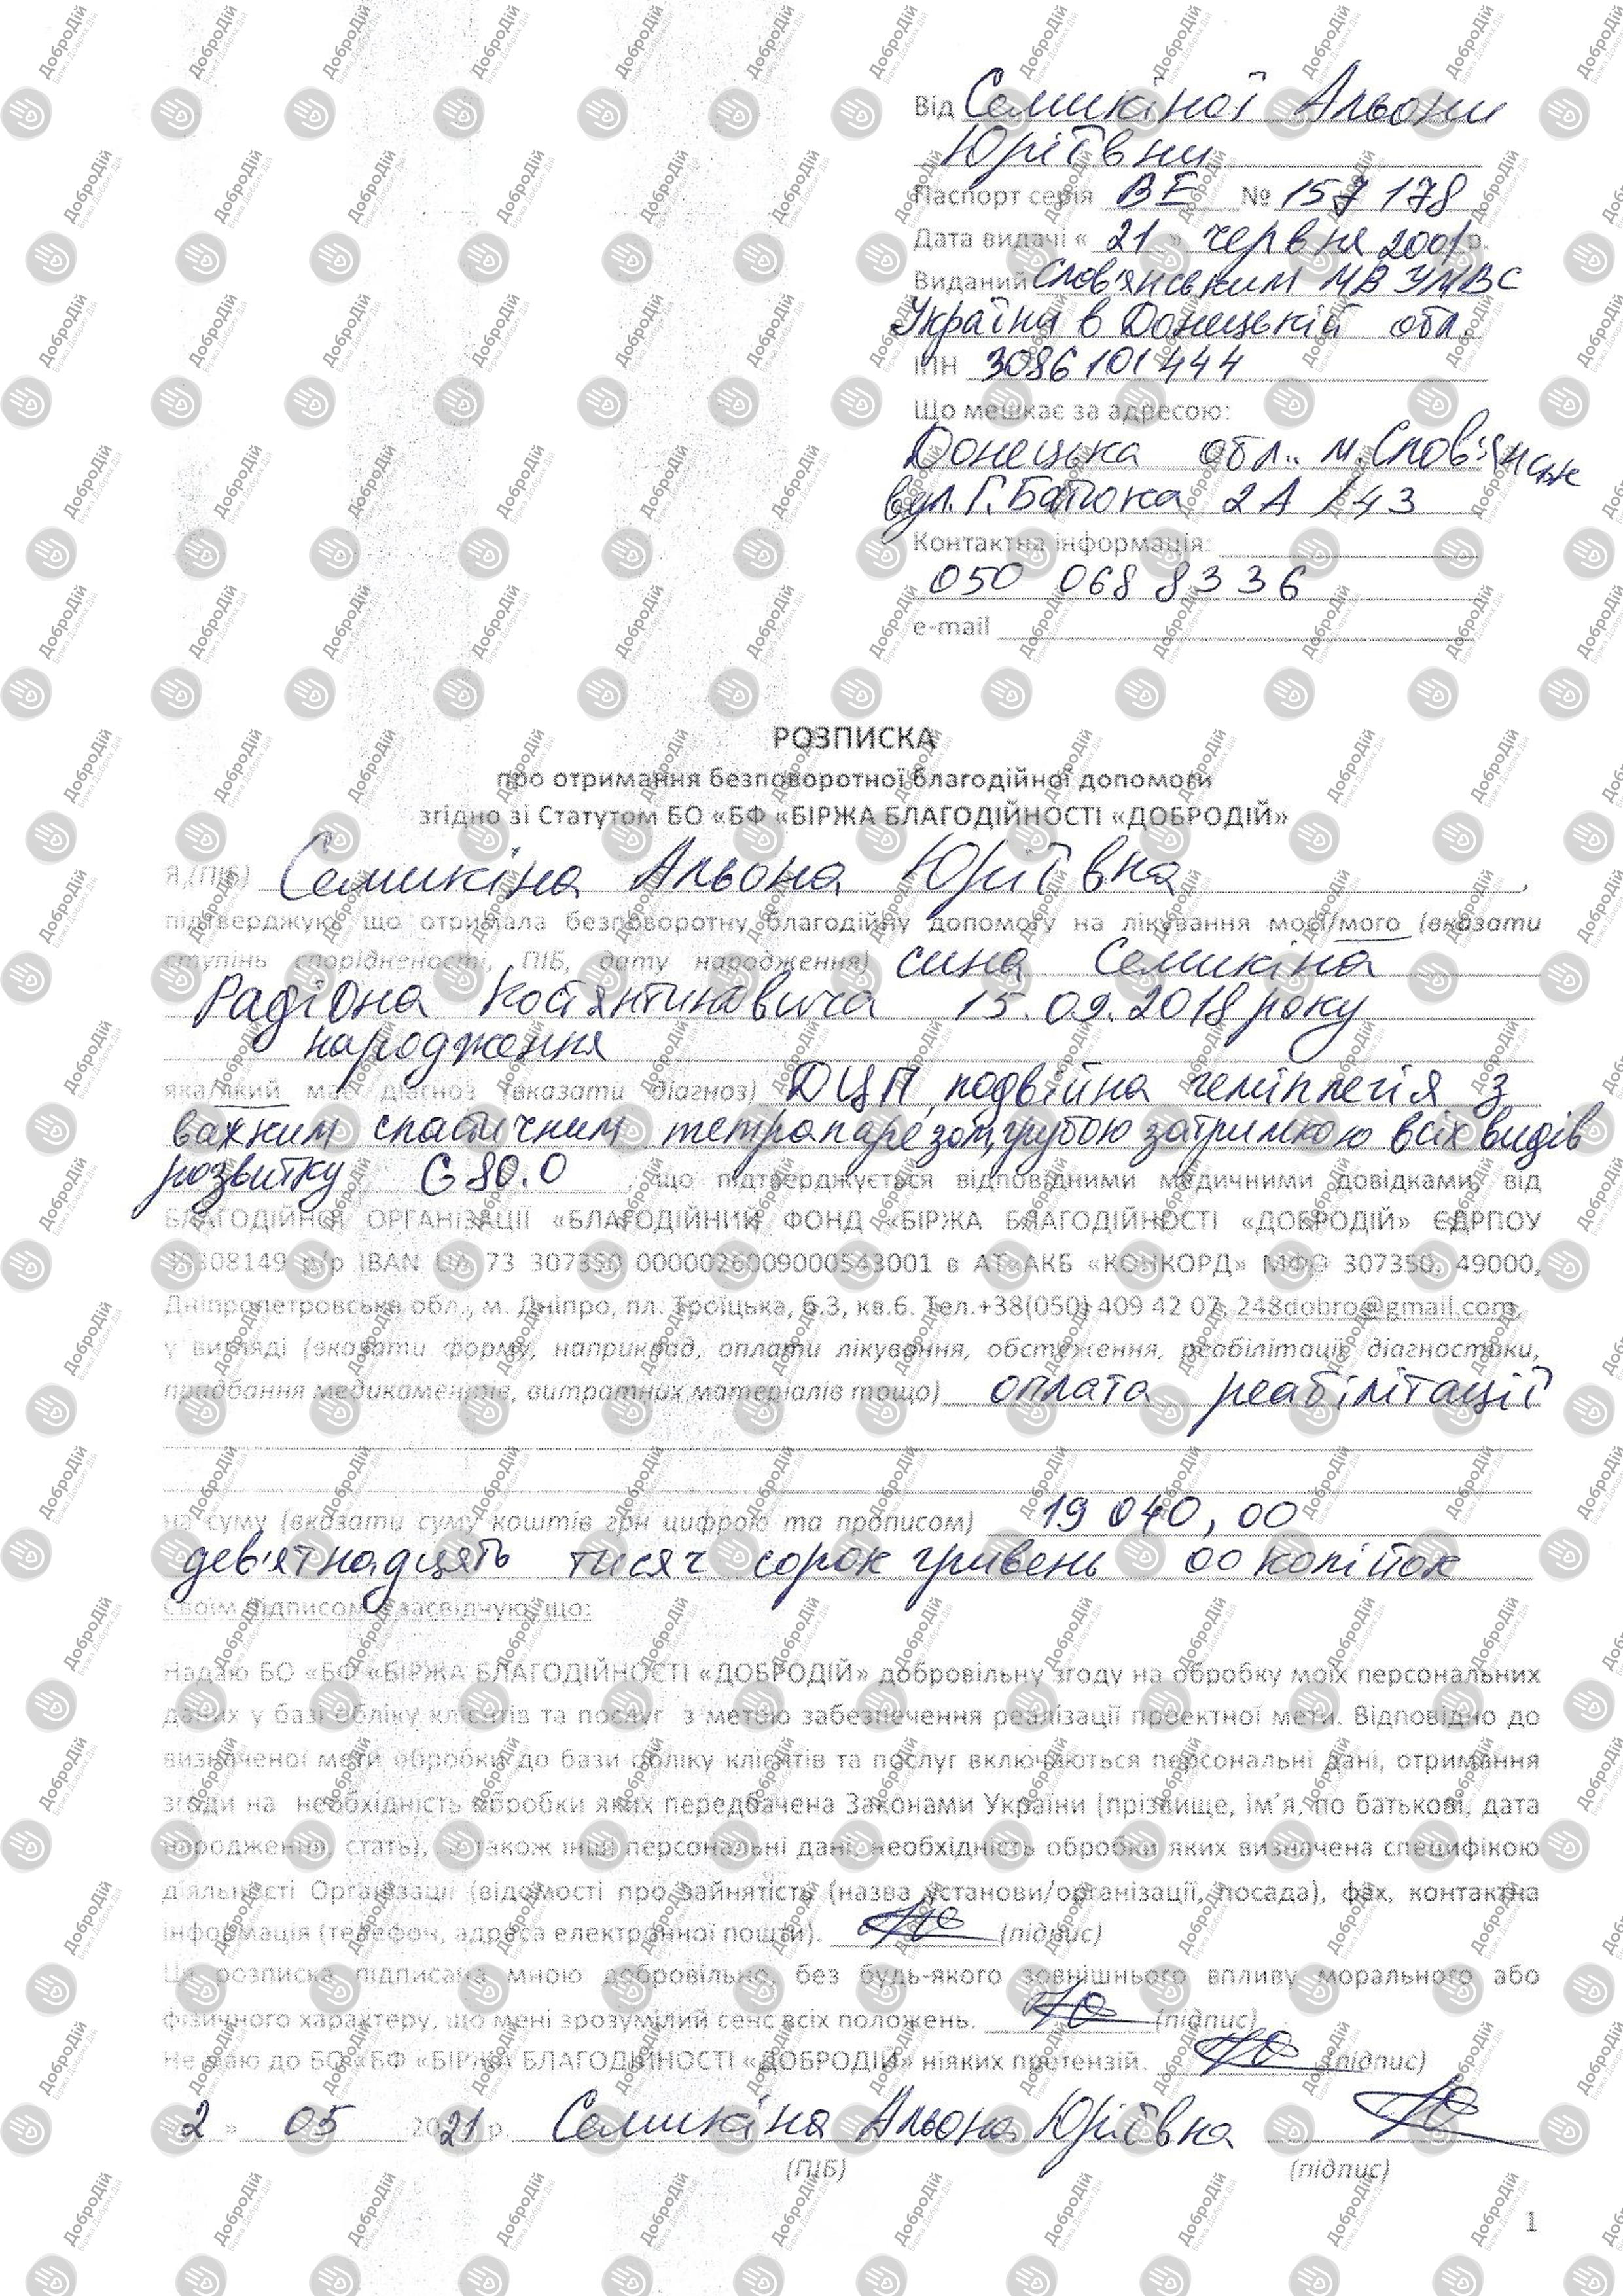 Від Семикіної Альони
Юріївни
Паспорт серія ВЕ № 157 178
Дата видачі « 21 » червня 2001 р.
Виданий Слов'янським МВ УМВС
України в Донецькій обл.
ІПН 3086101444
Що мешкає за адресою:
Донецька обл. м. Слов'янськ
вул. Г. Батюка 2А /43
Контактна інформація:
050 068 8336
e-mail
РОЗПИСКА
про отримання безповоротної благодійної допомоги
згідно зі Статутом БО «БФ «БІРЖА БЛАГОДІЙНОСТІ «ДОБРОДІЙ»
Я,(ПІБ) Семикіна Альона Юріївна ,
підтверджую, що отримала безповоротну благодійну допомогу на лікування моєї/мого (вказати
ступінь спорідненості, ПІБ, дату народження) сина Семикіна
Радіона Костянтиновича 15.09.2018 року
народження
яка/який має діагноз (вказати діагноз) ДЦП, подвійна геміплегія з
важким спастичним тетрапарезом, грубою затримкою всіх видів
розвитку G 80.0 , що підтверджується відповідними медичними довідками, від
БЛАГОДІЙНОЇ ОРГАНІЗАЦІЇ «БЛАГОДІЙНИЙ ФОНД «БІРЖА БЛАГОДІЙНОСТІ «ДОБРОДІЙ» ЄДРПОУ
р/р IBAN UA 73 307350 0000026009000543001 в АТ «АКБ «КОНКОРД» МФО 307350, 49000,
Дніпропетровська обл., м. Дніпро, пл. Троїцька, б.3, кв.6. Тел.+38(050) 409 42 07, 248dobro@gmail.com,
у вигляді (вказати форму, наприклад, оплати лікування, обстеження, реабілітації, діагностики,
придбання медикаментів, витратних матеріалів тощо) оплата реабілітації
на суму (вказати суму коштів грн цифрою та прописом) 19 040,00
дев'ятнадцять тисяч сорок гривень 00 копійок
Своїм підписом я засвідчую, що:
Надаю БО «БФ «БІРЖА БЛАГОДІЙНОСТІ «ДОБРОДІЙ» добровільну згоду на обробку моїх персональних
даних у базі обліку клієнтів та послуг з метою забезпечення реалізації проектної мети. Відповідно до
визначеної мети обробки до бази обліку клієнтів та послуг включаються персональні дані, отримання
згоди на необхідність обробки яких передбачена Законами України (прізвище, ім'я, по батькові, дата
народження, стать), а також інші персональні дані, необхідність обробки яких визначена специфікою
діяльності Організації (відомості про зайнятість (назва установи/організації, посада), фах, контактна
інформація (телефон, адреса електронної пошти). (підпис)
Ця розписка підписана мною добровільно, без будь-якого зовнішнього впливу морального або
фізичного характеру, що мені зрозумілий сенс всіх положень. (підпис)
Не маю до БО «БФ «БІРЖА БЛАГОДІЙНОСТІ «ДОБРОДІЙ» ніяких претензій. (підпис)
2 » 05 2021 р. Семикіна Альона Юріївна
(ПІБ) (підпис)
1